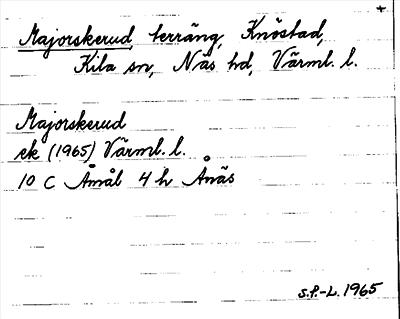 +
Majorskerud, terräng, Knöstad,
Kila sn, Näs hd, Värml. l.
Majorskerud
ek (1965) Värml. l.
10 C Åmål 4 h Ånäs
S.P.-L. 1965